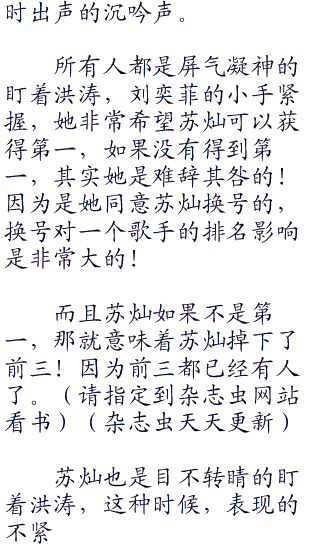 时出声的沉吟声。
所有人都是屏气凝神的
盯着洪涛，刘奕菲的小手紧
握，她非常希望苏灿可以获
得第一，如果没有得到第
一，其实她是难辞其咎的！
因为是她同意苏灿换号的，
换号对一个歌手的排名影响
是非常大的！
而且苏灿如果不是第
一，那就意味着苏灿掉下了
前三！因为前三都已经有人
了。（请指定到杂志虫网站
看书）（杂志虫天天更新）
苏灿也是目不转睛的盯
着洪涛，这种时候，表现的
不紧